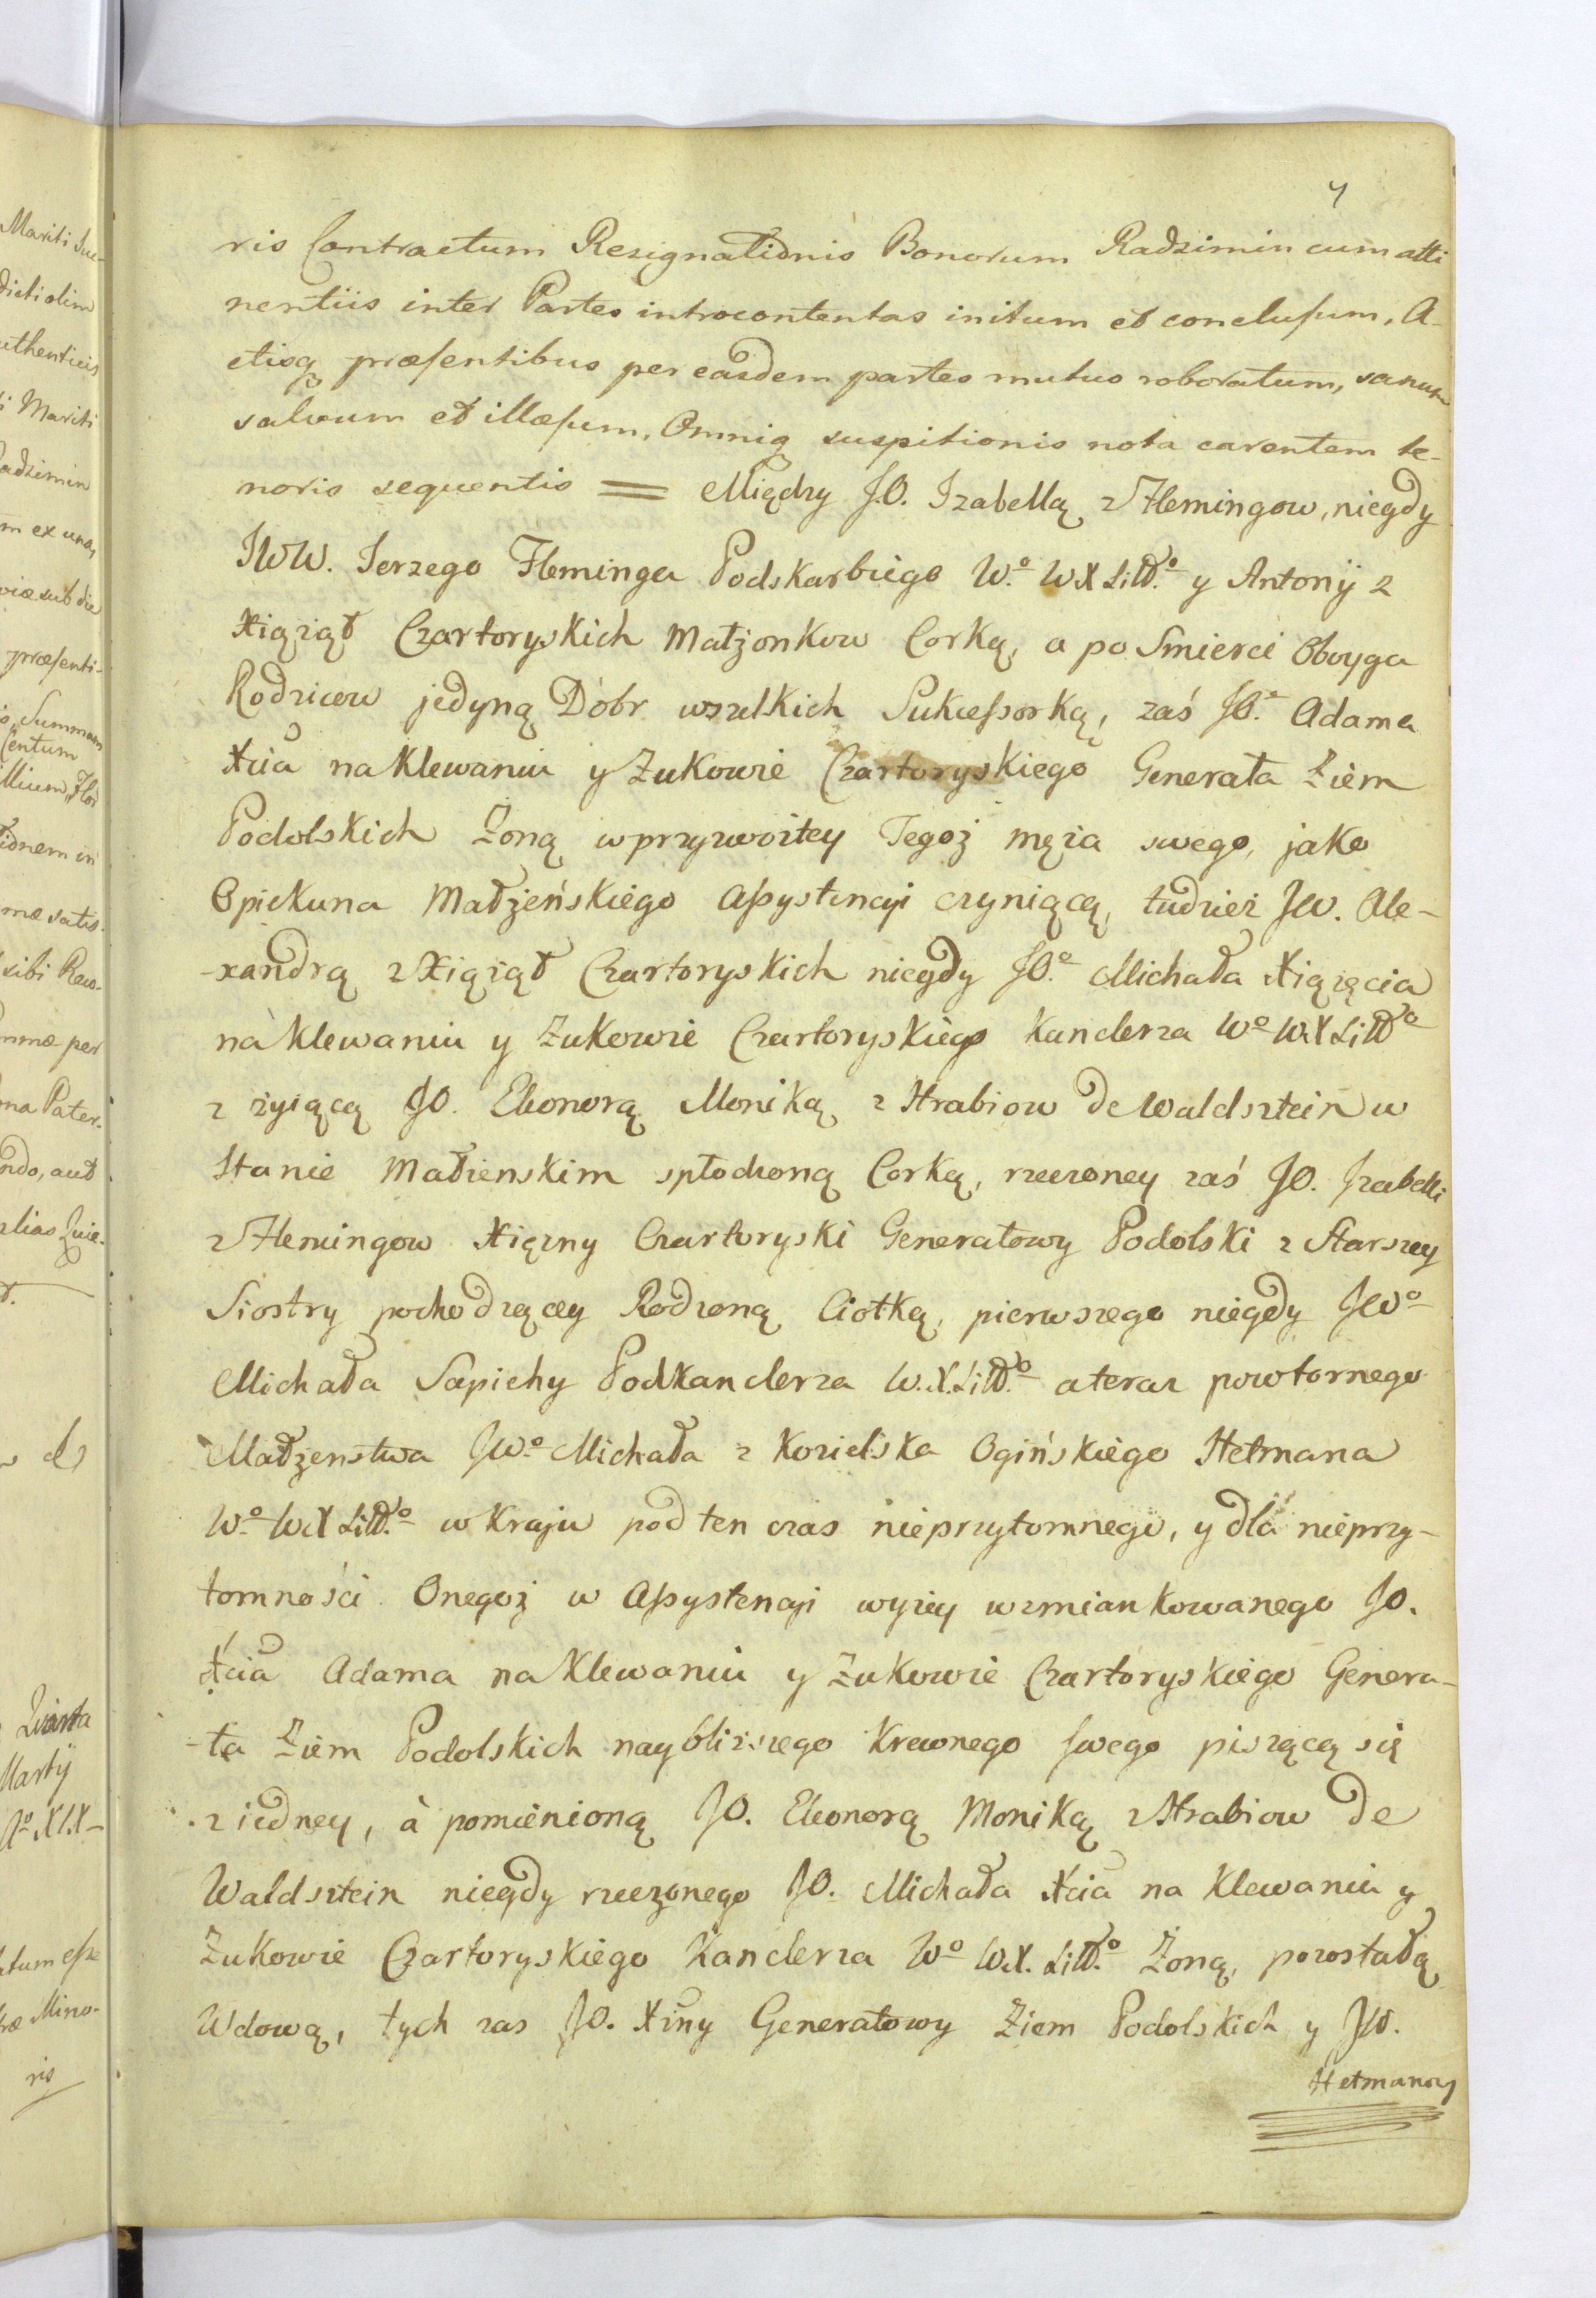 4
ris Contractum Resignationis Bonorum Radzimin cum atti
nentiis inter Partes introcontentas initum et conclusum, A-
ctisq præsentibus per easdem partes mutuo roboratum, sanum
salvum et illæsum, Omniq suspitionis nota carentem te-
noris sequentis = Między J.O. Izabellą z Flemingow, niegdy
JWW. Jerzego Fleminga Podskarbiego W.º WX Litt.º y Antonij z
Xiąząt Czartoryskich Małżonkow Corką, a po Smierci Oboyga
Rodzicow jedyną Dóbr wszelkich Sukcessorką, zaś JO.º Adama
Xcia na Klewaniu y Zukowie Czartoryskiego Generała Ziem
Podolskich Żoną w przyzwoitey Tegoż męża swego, jako
Opiekuna Małżeńskiego Assystencyi czyniącą, tudzież JW. Ale-
-xandrą z Xiąząt Czartoryskich niegdy JO.º Michała Xiążęcia
na Klewaniu y Zukowie Czartoryskiego Kanclerza Wº WX Littº
z żyiącą JO. Eleonorą Moniką z Hrabiow de Waldsztein w
Stanie Małżenskim spłodzoną Corką, rzeczoney zaś JO. Izabelli
z Flemingow Xiężny Czartoryski Generałowy Podolski z Starszey
Siostry pochodzącey Rodzoną Ciotką, pierwszego niegdy JWº
Michała Sapiehy Podkanclerza W.X.Litt.º a teraz powtornego
Małżenstwa JWº Michała z Kozielska Ogińskiego Hetmana
W.º WX Litt.º w Kraju pod ten czas nieprzytomnego, y dla nieprzy-
tomności Onegoż w Assystencyi wyżey wzmiankowanego JO.
Xcia Adama na Klewaniu y Zukowie Czartoryskiego Genera-
-ła Ziem Podolskich naybliższego Krewnego swego piszącą się
z iedney, à pomienioną JO. Eleonorą Moniką z Hrabiow de
Waldsztein niegdy rzeczonego JO. Michała Xcia na Klewaniu y
Zukowie Czartoryskiego Kanclerza Wº W.X. Litt.º Żoną, pozostałą
Wdową, tych zas JO. Xiny Generałowy Ziem Podolskich y JW.
Hetmanowy